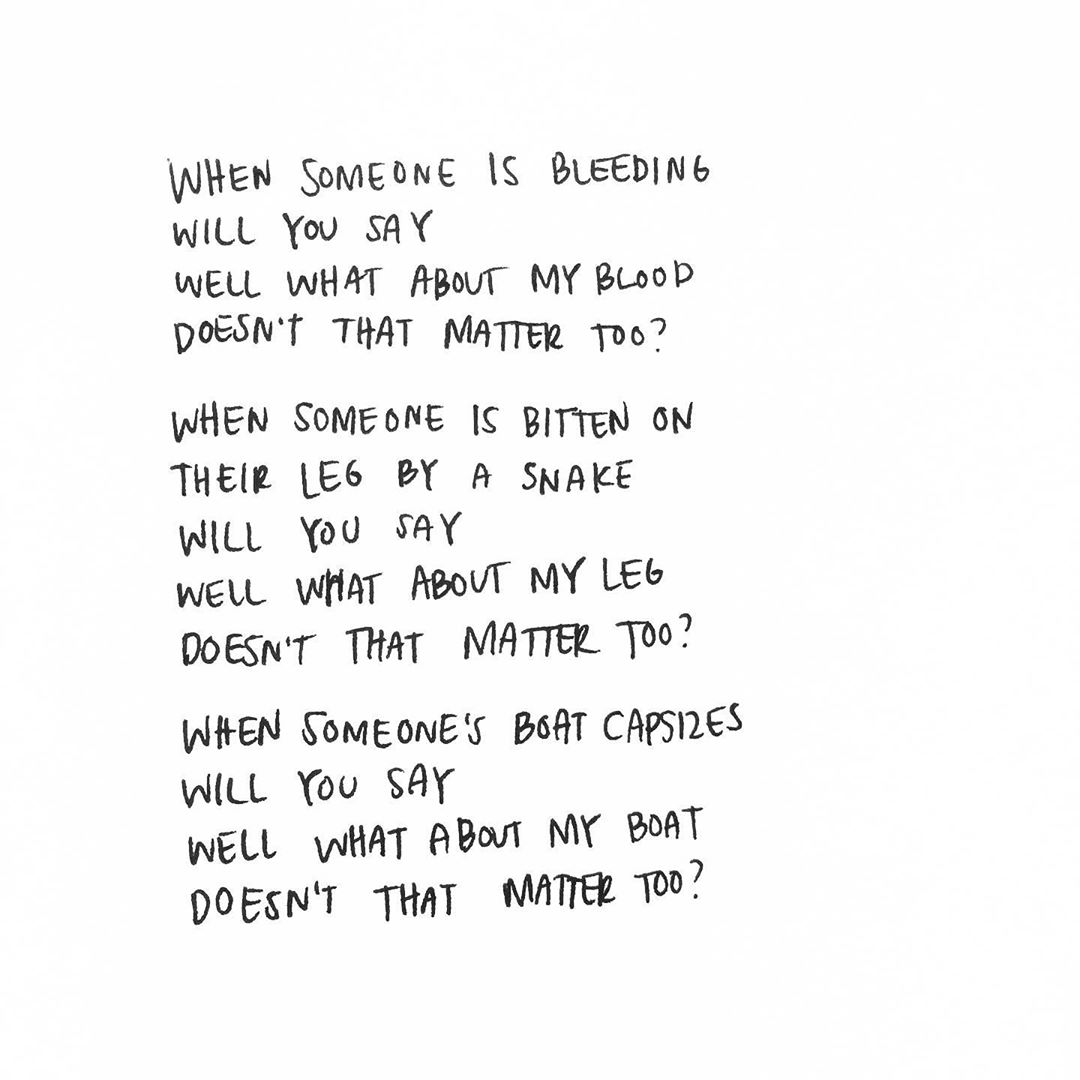 WHEN SOMEONE IS BLEEDING
WILL YOU SAY
WELL WHAT ABOUT MY BLOOD
DOESN'T THAT MATTER TOO?
WHEN SOMEONE IS BITTEN ON
THEIR LEG BY A SNAKE
WILL YOU SAY
WELL WHAT ABOUT MY LEG
DOESN'T THAT MATTER TOO?
WHEN SOMEONE'S BOAT CAPSIZES
WILL YOU SAY
WELL WHAT ABOUT MY BOAT
DOESN'T THAT MATTER TOO?